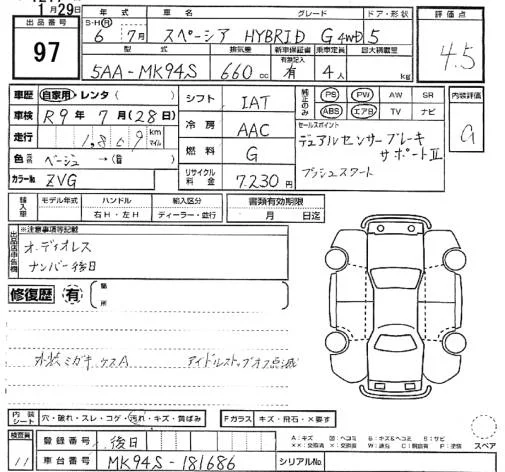 1月29日
出品番号 97
S・H・R 年式 車名 グレード ドア・形状 評価点
6 7月 スペーシア HYBRID G 4WD 5 4.5
型式 排気量 新車保証書 乗車定員 最大積載量
有無記入
5AA-MK94S 660cc 有 4人 kg
車歴 自家用・レンタ( ) シフト IAT 純正のみ PS PW AW SR 内装評価
車検 R9年7月(28日) 冷房 AAC ABS エアB TV ナビ a
走行 1.8 0 9 km マイル セールスポイント
燃料 G デュアルセンサーブレーキ
サポートⅡ
色 ベージュ→( ) プッシュスタート
カラーNo. ZVG リサイクル料金 7,230円
輸入車 モデル年式 ハンドル 輸入区分 書類有効期限
右H・左H ディーラー・並行 月 日迄
出品店申告欄 ※注意事項等記載
オーディオレス
ナンバー後日
修復歴 有 箇所
水状ミガキ ウスA アイドルストップオフ点滅
内装シート 穴・破れ・スレ・コゲ・汚れ・キズ・黄ばみ Fガラス キズ・飛石・×要す
検査員 11 登録番号 後日
車台番号 MK94S-181686 シリアルNo.
A:キズ U:ヘコミ B:キズ&ヘコミ S:サビ
××:交換済 ×:要交換 W:波 C:腐食 P:塗装
スペア